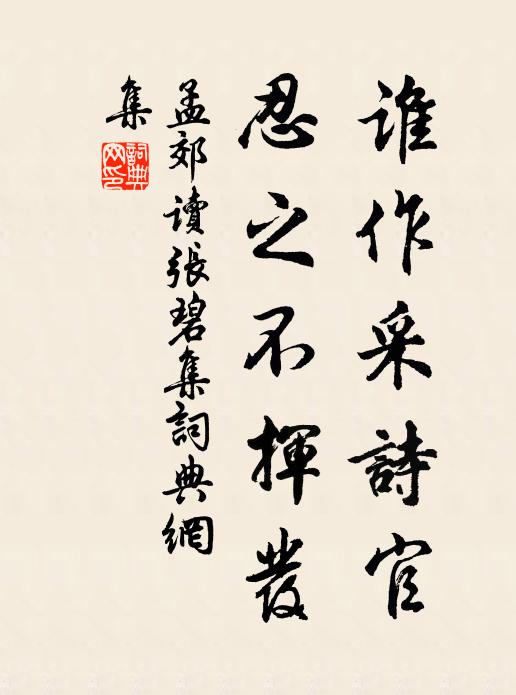 誰作采詩官
忍之不揮發
孟郊讀張碧集詞典網
集
詞典
网印